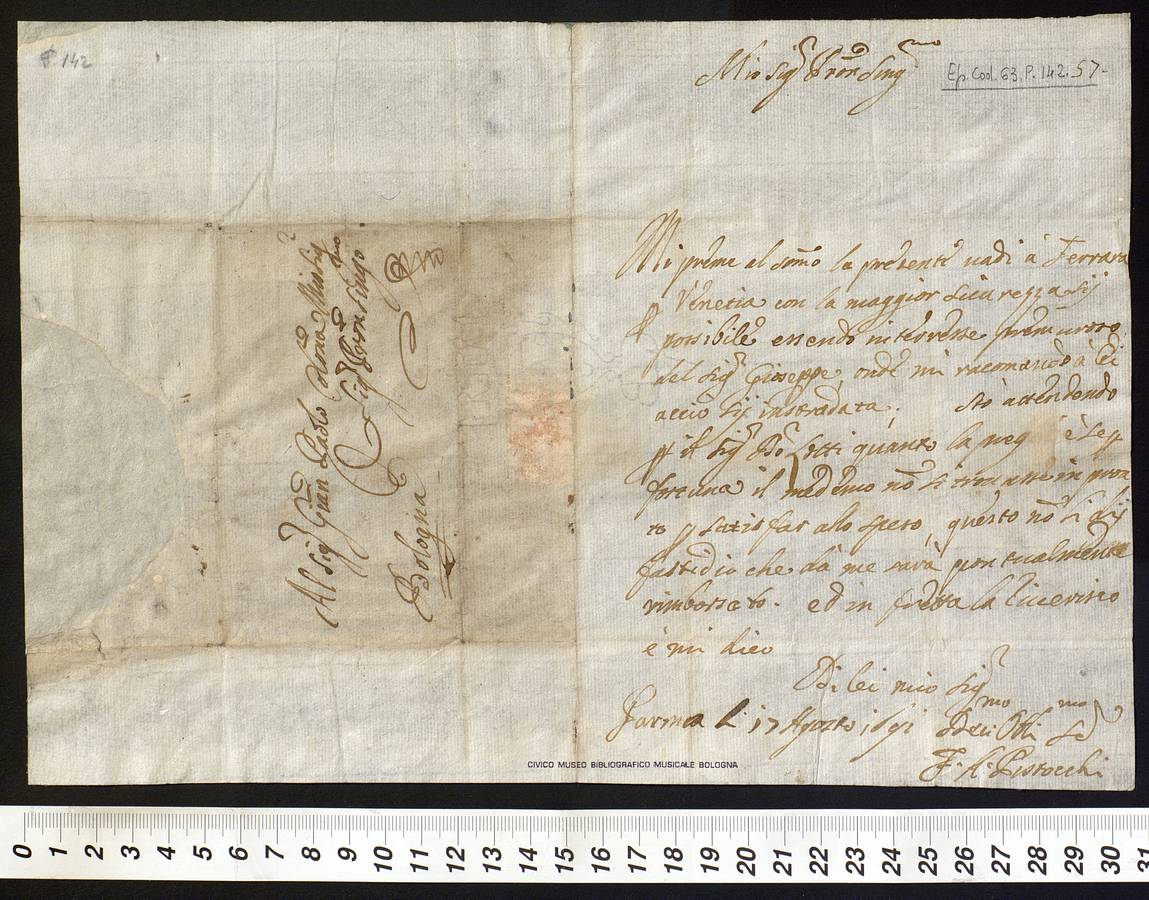 P 142
Ep. Cod. 63. P. 142. 57.
Mio Sig.r Pron Sing.mo
Mi preme al somo la presente uadi à Ferrara
p Venetia con la maggior sicurezza sij
possibile essendo interesse premuroso
del Sig.r Gioseppe, onde mi racomando à lei
acciò sij instradata. Stò attendendo
p il Sig.r quanto la preg è se p
fortuna il medemo nõ si trouasse in pron
to p satisfar alo speso, questo nõ li dij
fastidio che da me sarà pontualmente
rimborsato. ed in fretta la riuerisco
e mi dico
Di lei mio Sig.r
Parma li 17 Agosto 1691
F. A. Pistocchi
Al Sig.r Gian Paolo Colonna Mio Sig.r
Sig.r Pron Singo
Bologna
CIVICO MUSEO BIBLIOGRAFICO MUSICALE BOLOGNA
0 1 2 3 4 5 6 7 8 9 10 11 12 13 14 15 16 17 18 19 20 21 22 23 24 25 26 27 28 29 30 31